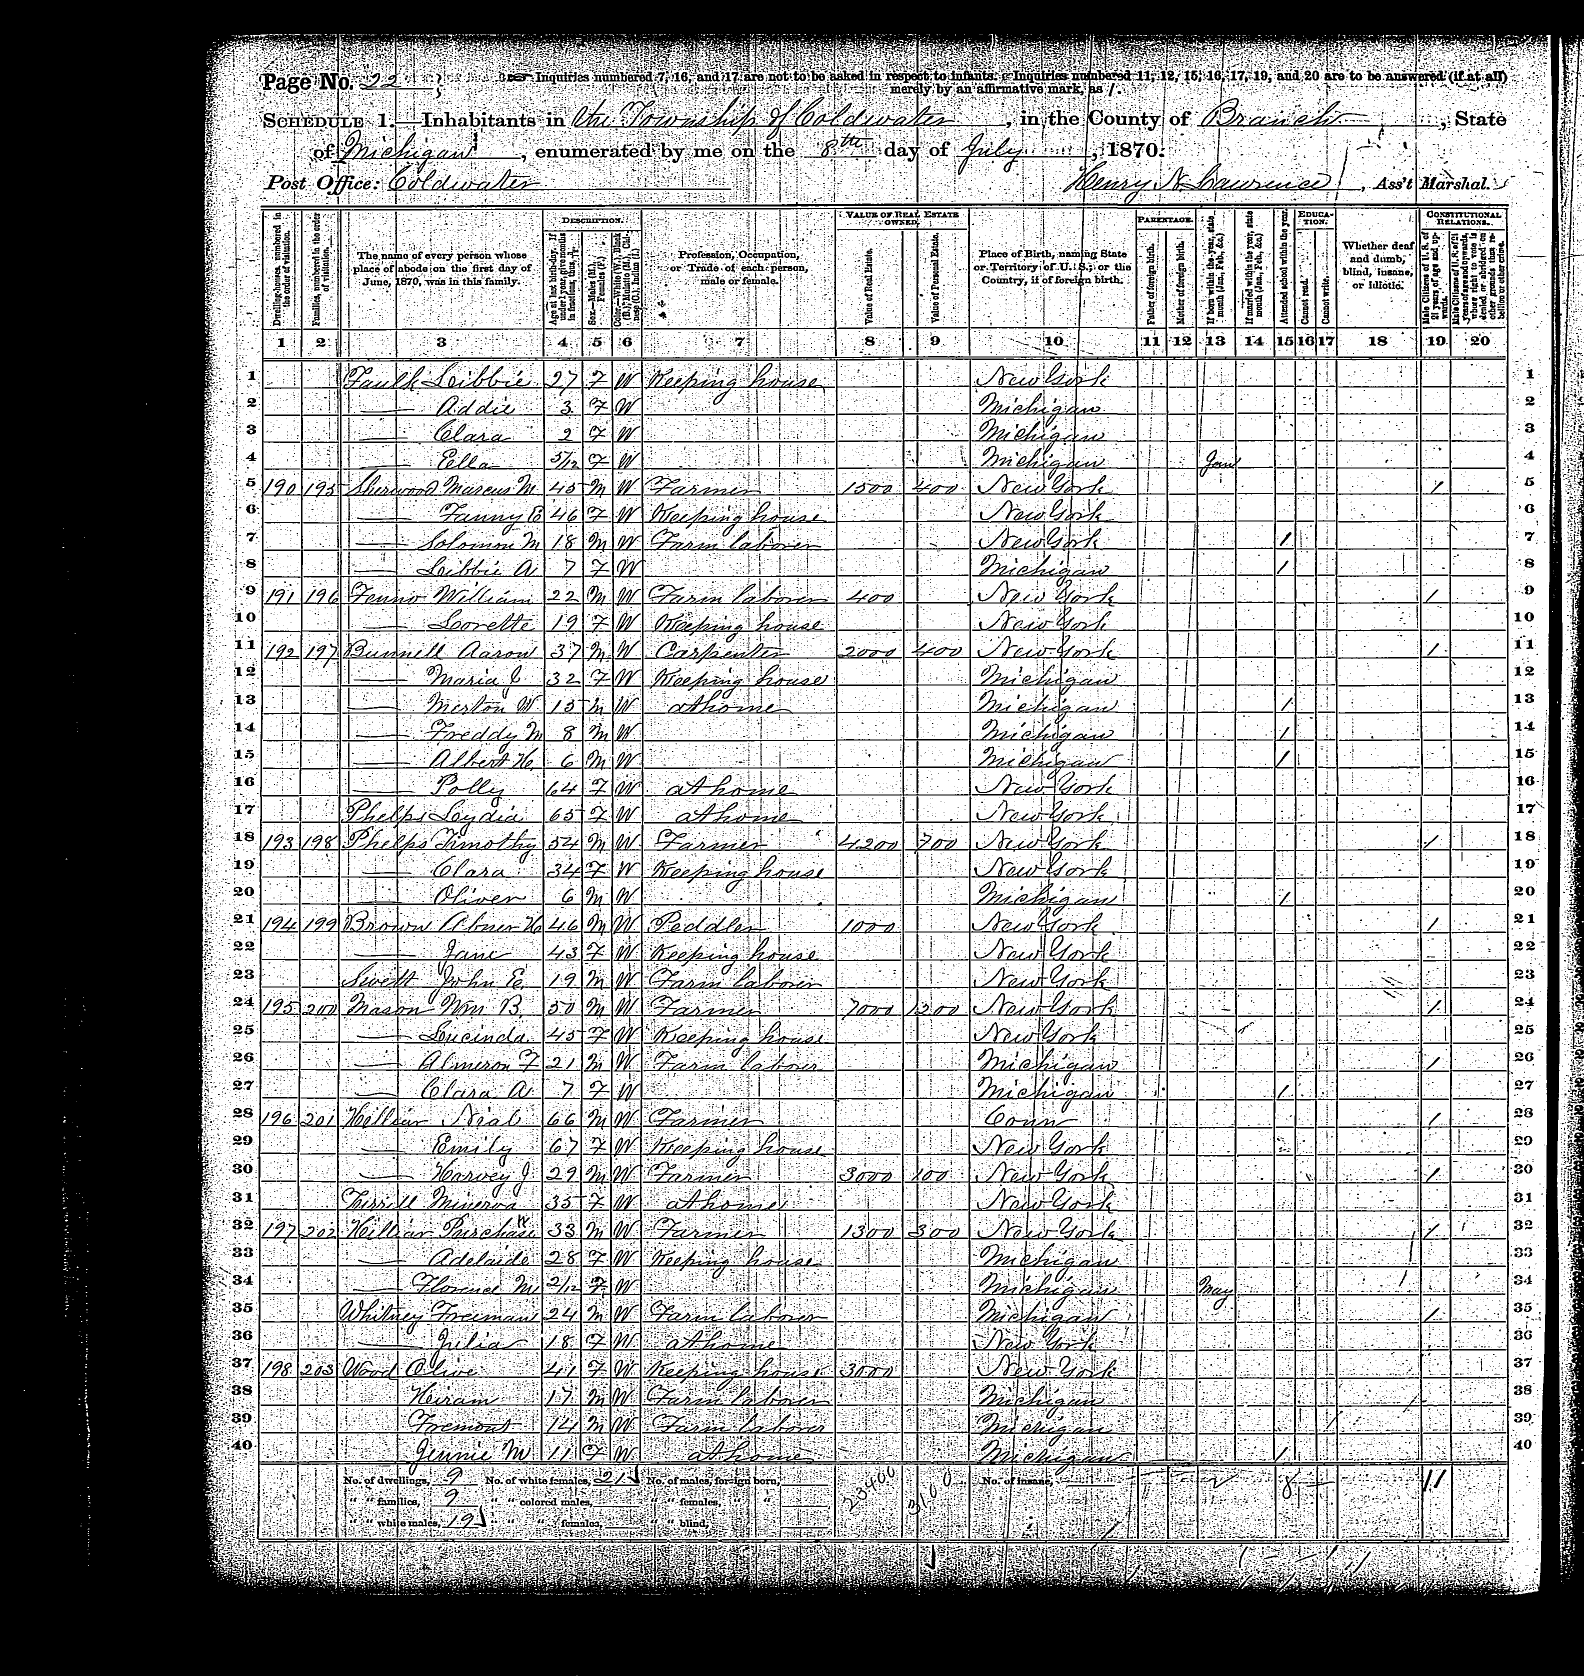 Page No. 22
Inquiries numbered 7, 16, and 17 are not to be asked in respect to infants. Inquiries numbered 11, 12, 15, 16, 17, 19, and 20 are to be answered (if at all)
merely by an affirmative mark, as /.
SCHEDULE 1.—Inhabitants in the Township of Coldwater, in the County of Branch, State
of Michigan, enumerated by me on the 8th day of July, 1870.
Post Office: Coldwater Henry N Lawrence, Ass't Marshal.
Dwelling-houses, numbered in the order of visitation.
Families, numbered in the order of visitation.
The name of every person whose place of abode on the first day of June, 1870, was in this family.
DESCRIPTION.
Sex.—Males (M.), Females (F.).
Profession, Occupation, or Trade of each person, male or female.
VALUE OF REAL ESTATE OWNED.
Value of Real Estate.
Value of Personal Estate.
Place of Birth, naming State or Territory of U. S.; or the Country, if of foreign birth.
PARENTAGE.
Father of foreign birth.
Mother of foreign birth.
If born within the year, state month (Jan., Feb., &c.)
If married within the year, state month (Jan., Feb., &c.)
Attended school within the year.
EDUCATION.
Cannot read.
Cannot write.
Whether deaf and dumb, blind, insane, or idiotic.
CONSTITUTIONAL RELATIONS.
1 2 3 4 5 6 7 8 9 10 11 12 13 14 15 16 17 18 19 20
1 Faulk Libbie 27 F W Keeping house New York 1
2 — Addie 3 F W Michigan 2
3 — Clara 2 F W Michigan 3
4 — Ella 5/12 F W Michigan Jan 4
5 190 195 Sherwood Marcus M 45 M W Farmer 1500 400 New York / 5
6 — Fanny B 46 F W Keeping house New York 6
7 — Solomon M 18 M W Farm laborer New York / 7
8 — Libbie A 7 F W Michigan / 8
9 191 196 Fenno William 22 M W Farm laborer 400 New York / 9
10 — Lorette 19 F W Keeping house New York 10
11 192 197 Bunnell Aaron 37 M W Carpenter 2000 400 New York / 11
12 — Maria C 32 F W Keeping house Michigan 12
13 — Merton W 15 M W at home Michigan / 13
14 — Freddy M 8 M W Michigan / 14
15 — Albert H 6 M W Michigan / 15
16 — Polly 64 F W at home New York 16
17 Phelps Lydia 65 F W at home New York 17
18 193 198 Phelps Timothy 54 M W Farmer 4200 700 New York / 18
19 — Clara 34 F W Keeping house New York 19
20 — Oliver 6 M W Michigan / 20
21 194 199 Brown Abner H 46 M W Peddler 1000 New York / 21
22 — Jane 43 F W Keeping house New York 22
23 Swett John E. 19 M W Farm laborer New York 23
24 195 200 Mason Wm B. 50 M W Farmer 7000 1200 New York / 24
25 — Lucinda 45 F W Keeping house New York 25
26 — Almeron F 21 M W Farm laborer Michigan / 26
27 — Clara A 7 F W Michigan / 27
28 196 201 66 M W Farmer Conn / 28
29 — Emily 67 F W Keeping house New York 29
30 — Harvey J 29 M W Farmer 3000 100 New York / 30
31 Minerva 35 F W at home New York 31
32 197 202 Purchase W 33 M W Farmer 1300 300 New York / 32
33 — Adelaide 28 F W Keeping house Michigan 33
34 — Florence M 2/12 F W Michigan May 34
35 Whitney Freeman 24 M W Farm laborer Michigan / 35
36 — Julia 18 F W at home New York 36
37 198 203 Wood Olive 41 F W Keeping house 3000 New York 37
38 Hiram 17 M W Farm laborer Michigan 38
39 Fremont 14 M W Farm laborer Michigan 39
40 Jennie M 11 F W at home Michigan / 40
No. of dwellings, 9 No. of white females, 21 No. of males, foreign born, 23400 3100 No. of insane, 2 8 11
" " families, 9 " " colored males, " " females, " "
" " white males, 19 " " " females, " " blind,